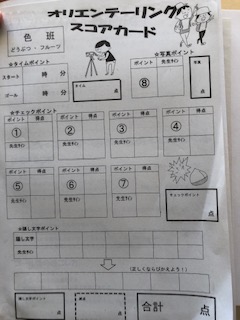 オリエンテーリング
スコアカード
色班
どうぶつ・フルーツ
☆タイムポイント
スタート 時 分
ゴール 時 分
タイム
点
☆写真ポイント
ポイント 先生サイン 写真
⑧
点
☆チェックポイント
ポイント 得点 ポイント 得点 ポイント 得点 ポイント 得点
① ② ③ ④
先生サイン 先生サイン 先生サイン 先生サイン
ポイント 得点 ポイント 得点 ポイント 得点
⑤ ⑥ ⑦
先生サイン 先生サイン 先生サイン
チェックポイント
点
☆隠し文字ポイント
隠し文字
先生サイン
(正しくならびかえよう！)
隠し文字ポイント
点
減点
点
合計 点